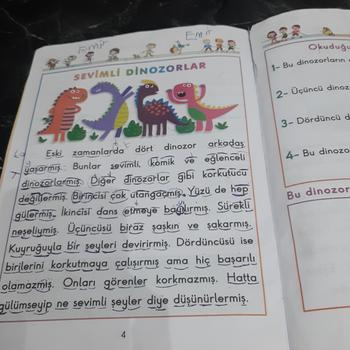 Emir
Emir
SEVİMLİ DİNOZORLAR
Eski zamanlarda dört dinozor arkadaş
yaşarmış. Bunlar sevimli, komik ve eğlenceli
dinozorlarmış. Diğer dinozorlar gibi korkutucu
değillermiş. Birincisi çok utangaçmış. Yüzü de hep
gülermiş. İkincisi dans etmeye bayılırmış. Sürekli
neşeliymiş. Üçüncüsü biraz şaşkın ve sakarmış.
Kuyruğuyla bir şeyleri devirirmiş. Dördüncüsü ise
birilerini korkutmaya çalışırmış ama hiç başarılı
olamazmış. Onları görenler korkmazmış. Hatta
gülümseyip ne sevimli şeyler diye düşünürlermiş.
4
Okuduğu
1- Bu dinozorların
2- Üçüncü dinoz
3- Dördüncü d
4- Bu dinozo
Bu dinozor